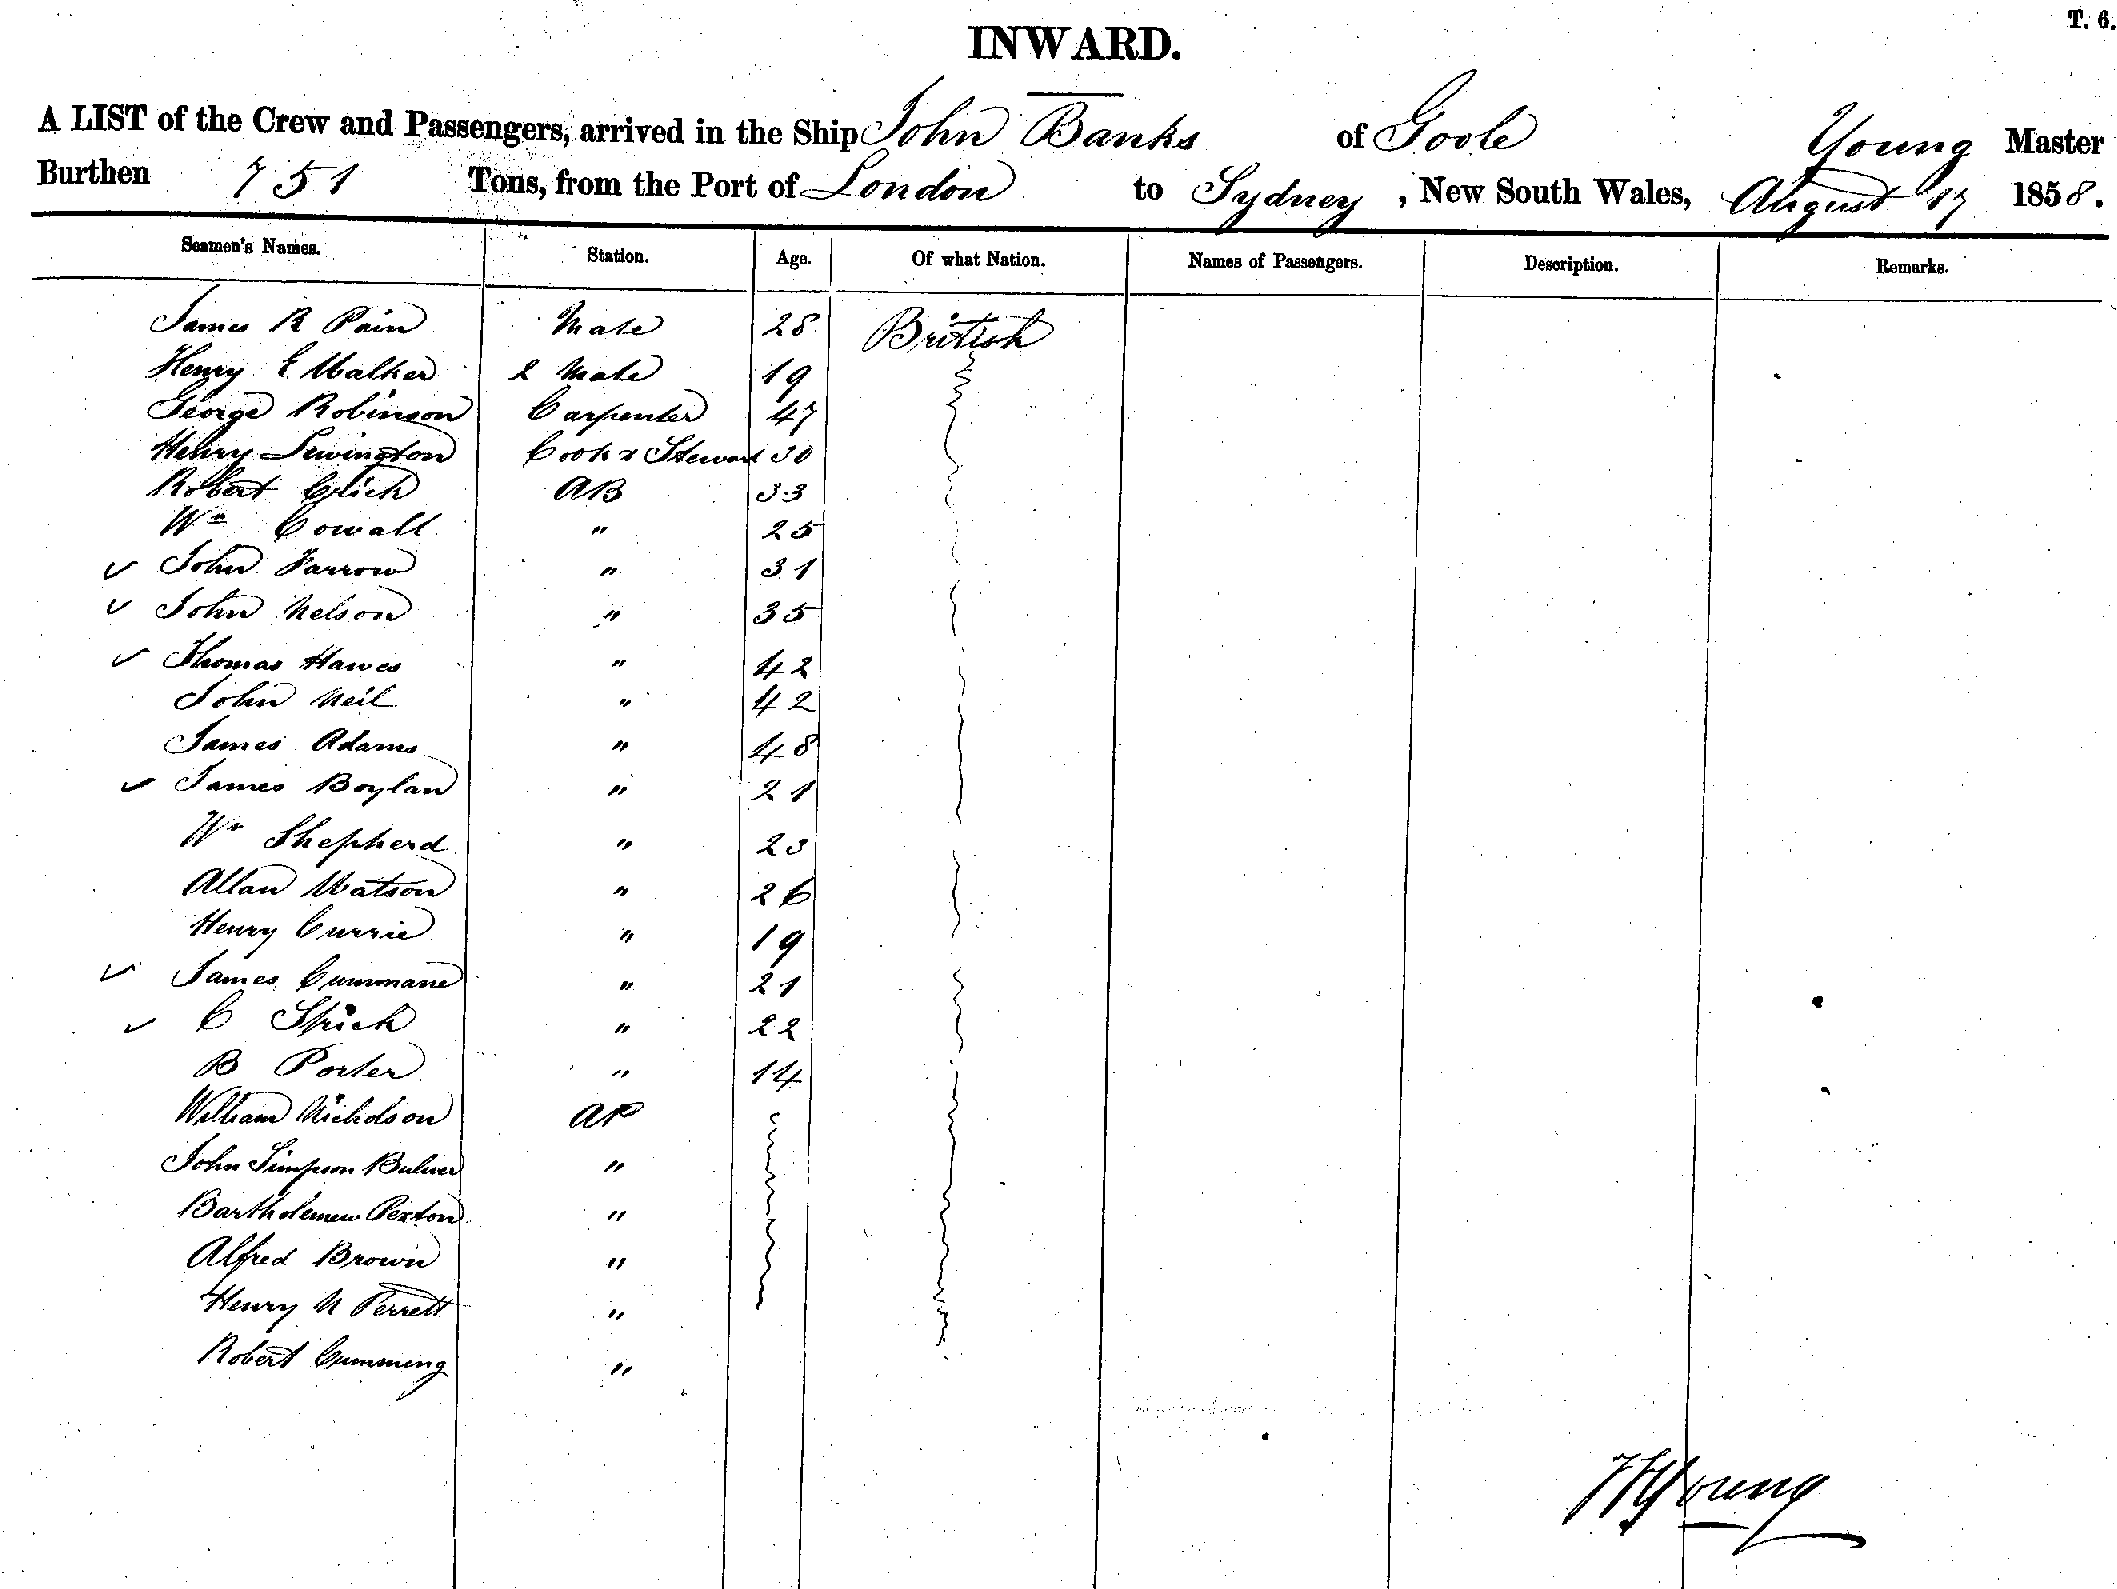 T. 6.
INWARD.
A LIST of the Crew and Passengers, arrived in the Ship John Banks of Goole Young Master
Burthen 751 Tons, from the Port of London to Sydney, New South Wales, August 17 1858.
Seamen's Names. Station. Age. Of what Nation. Names of Passengers. Description. Remarks.
James R Pain Mate 28 British
Henry E Walker 2 Mate 19
George Robinson Carpenter 47
Henry Lewington Cook & Steward 30
Robert AB 33
Wm Cowall " 25
✓ John Farrow " 31
✓ John Nelson " 35
✓ Thomas Hawes " 42
John Neil " 42
James Adams " 48
✓ James Boylan " 21
Wm Shepherd " 23
Allan Watson " 26
Henry Currie " 19
✓ James Cummane " 21
✓ C " 22
B Porter " 14
William Nicholson AP
John Simpson Bulmer "
Bartholemew Pexton "
Alfred Brown "
Henry N Perrett "
Robert Cumming "
Young